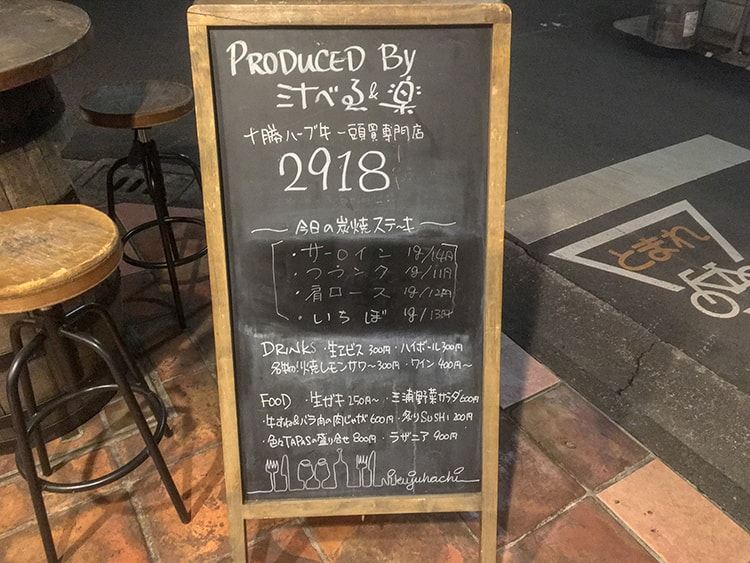 PRODUCED By
ミナベヱ&楽
十勝ハーブ牛一頭買専門店
2918
今日の炭焼ステーキ
・サーロイン 1g/14円
・フランク 1g/11円
・肩ロース 1g/12円
・いちぼ 1g/13円
DRINKS ・生ヱビス 300円 ・ハイボール 300円
名物!!焼レモンサワー300円・ワイン 400円〜
FOOD ・生ガキ 250円〜 ・三浦野菜サラダ 600円
・牛すね&バラ肉の肉じゃが 600円 ・炙りSUSHI 200円
・色々TAPASの盛り合せ 800円 ・ラザニア 900円
Nikujuhachi
とまれ